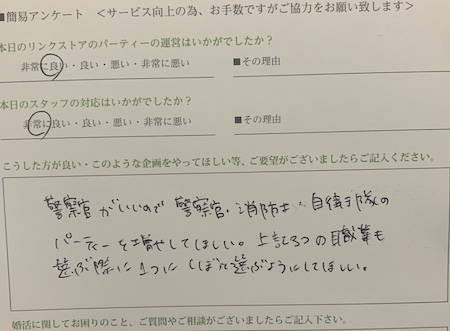 ■簡易アンケート　＜サービス向上の為、お手数ですがご協力をお願い致します＞
本日のリンクストアのパーティーの運営はいかがでしたか？
非常に良い・良い・悪い・非常に悪い　■その理由
本日のスタッフの対応はいかがでしたか？
非常に良い・良い・悪い・非常に悪い　■その理由
こうした方が良い・このような企画をやってほしい等、ご要望がございましたらご記入ください。
警察官がいいので警察官・消防士・自衛隊の
パーティーを増やしてほしい。上記3つの職業も
選ぶ際に1つにしぼって選ぶようにしてほしい。
婚活に関してお困りのこと、ご質問やご相談がございましたらご記入下さい。